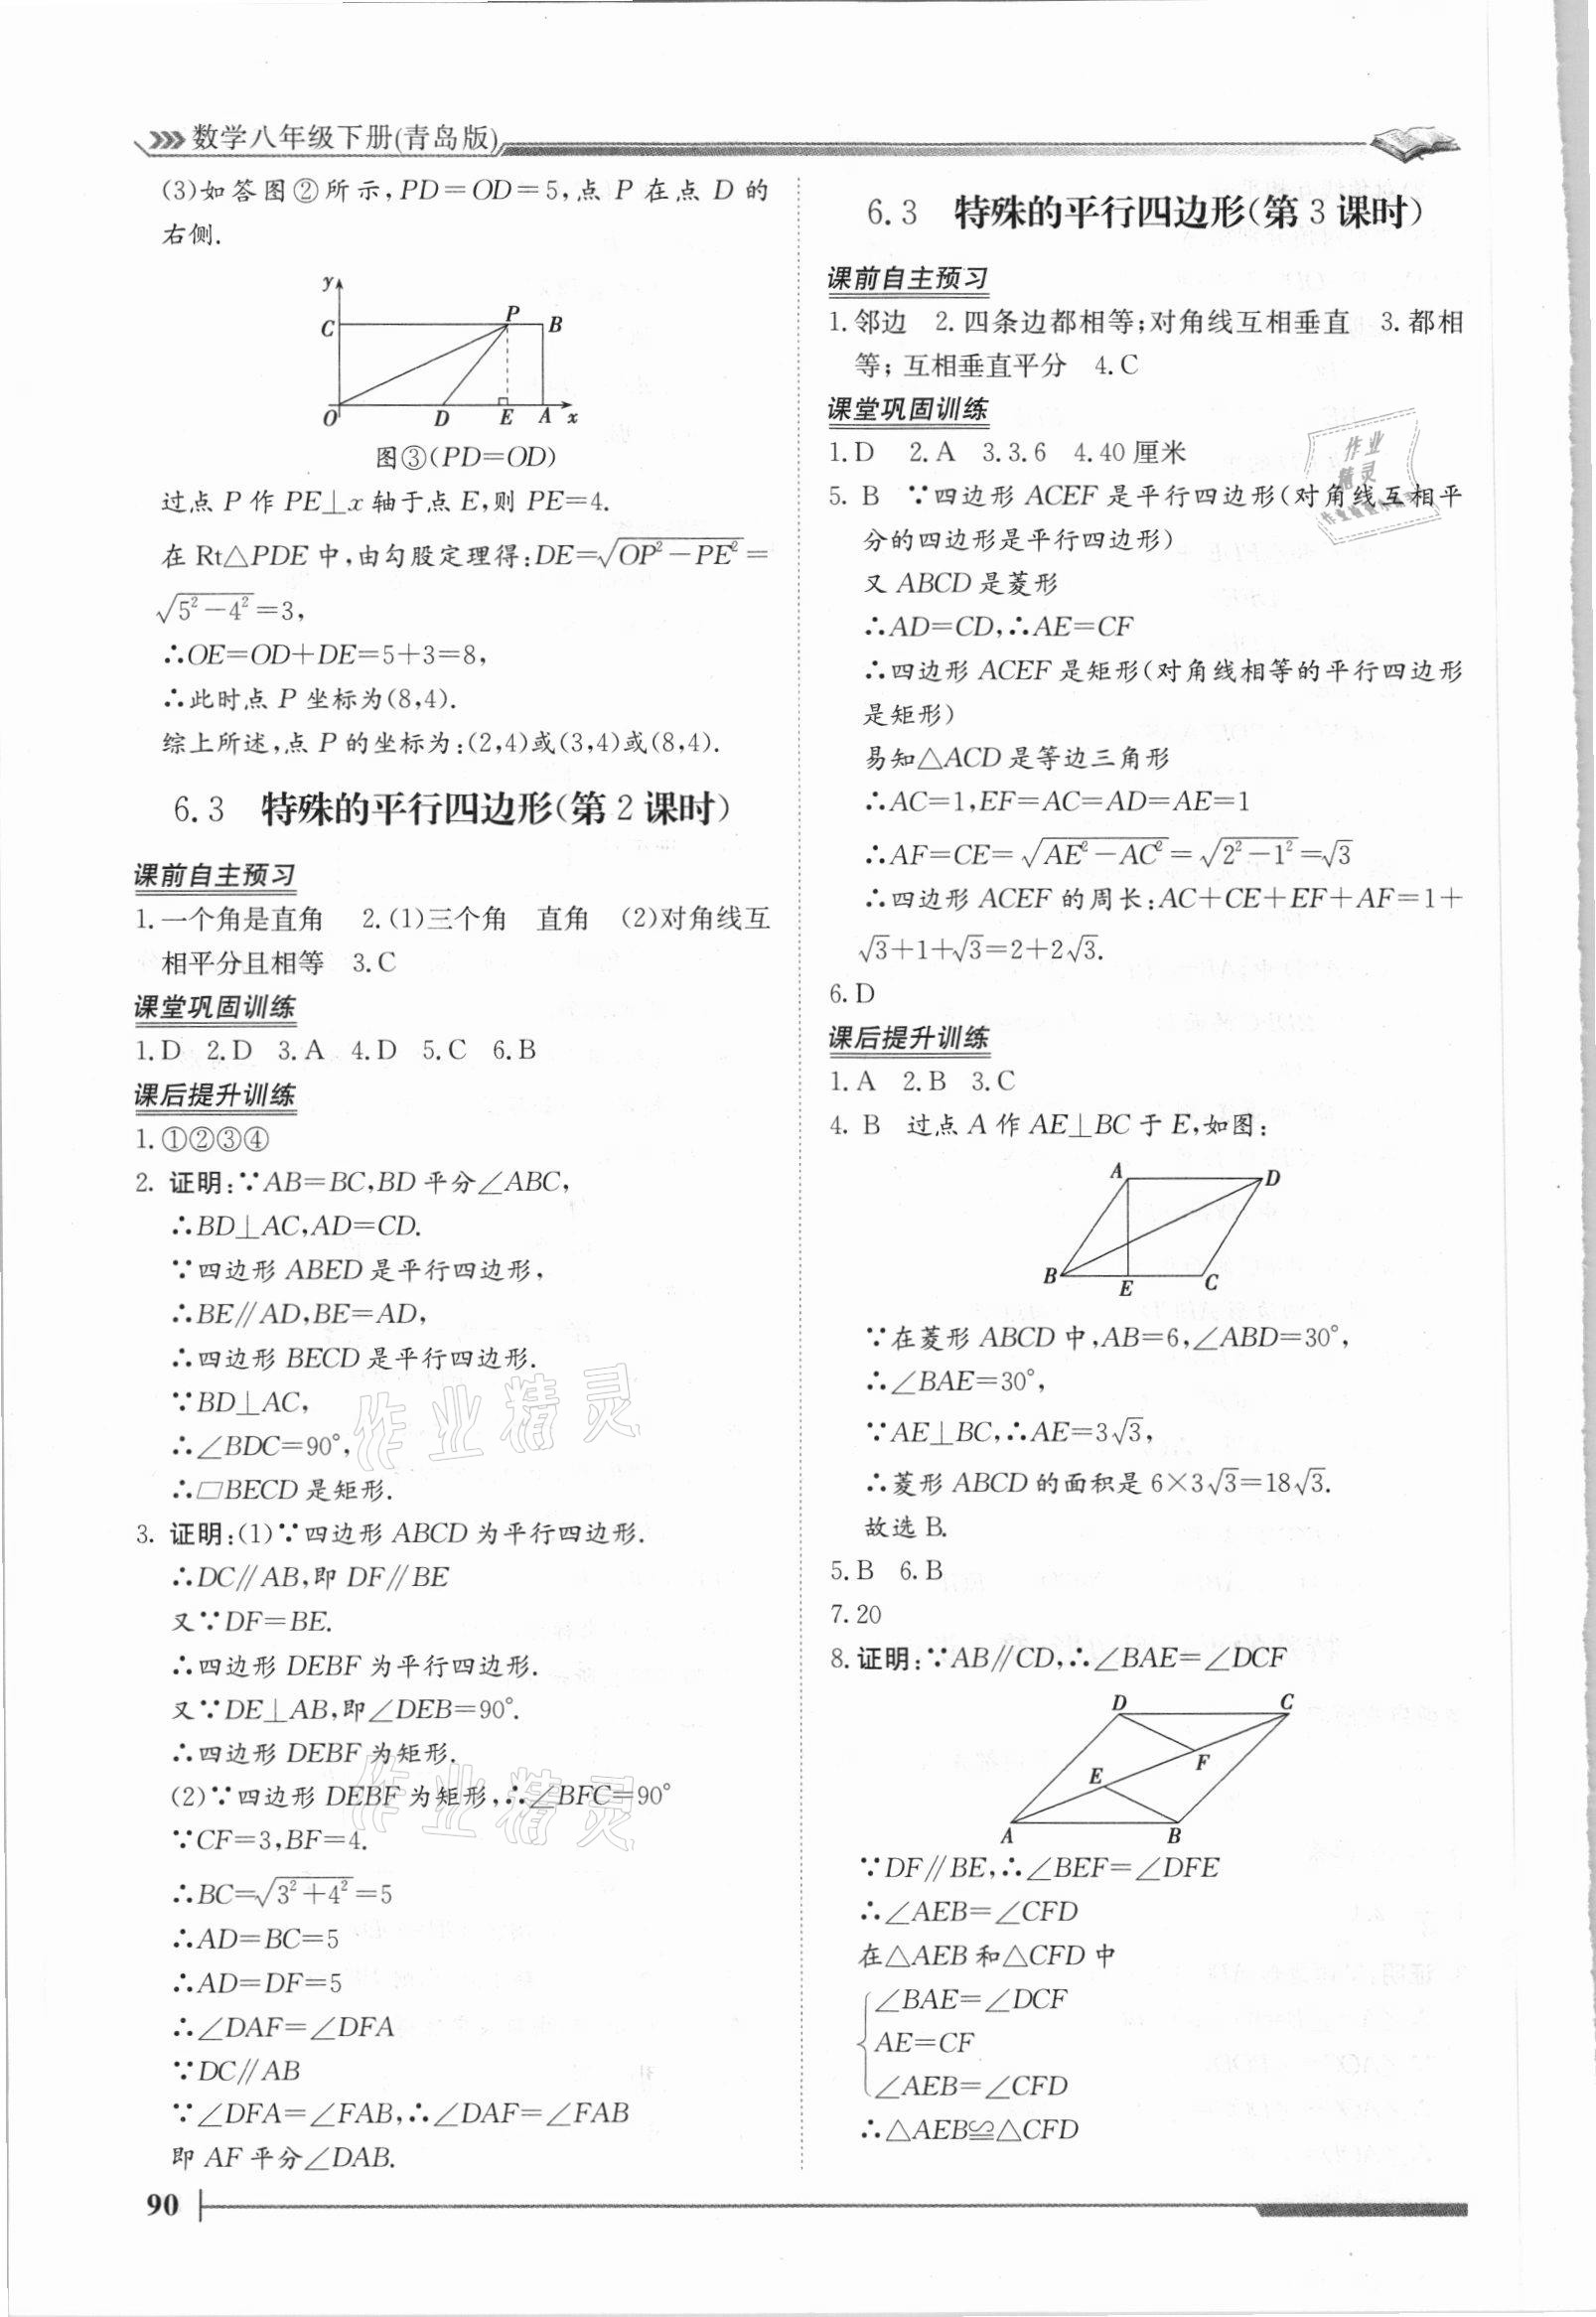 数学八年级下册(青岛版)
(3)如答图②所示,PD=OD=5,点 P 在点 D 的
右侧.
y
C
P
B
O
D
E
A
x
图③(PD=OD)
过点 P 作 PE⊥x 轴于点 E,则 PE=4.
在 Rt△PDE 中,由勾股定理得:DE=√(OP²-PE²)=
√(5²-4²)=3,
∴OE=OD+DE=5+3=8,
∴此时点 P 坐标为(8,4).
综上所述,点 P 的坐标为:(2,4)或(3,4)或(8,4).
6.3 特殊的平行四边形(第 2 课时)
课前自主预习
1.一个角是直角 2.(1)三个角 直角 (2)对角线互
相平分且相等 3.C
课堂巩固训练
1.D 2.D 3.A 4.D 5.C 6.B
课后提升训练
1.①②③④
2. 证明:∵AB=BC,BD 平分∠ABC,
∴BD⊥AC,AD=CD.
∵四边形 ABED 是平行四边形,
∴BE∥AD,BE=AD,
∴四边形 BECD 是平行四边形.
∵BD⊥AC,
∴∠BDC=90°,
∴▱BECD 是矩形.
3. 证明:(1)∵四边形 ABCD 为平行四边形.
∴DC∥AB,即 DF∥BE
又∵DF=BE.
∴四边形 DEBF 为平行四边形.
又∵DE⊥AB,即∠DEB=90°.
∴四边形 DEBF 为矩形.
(2)∵四边形 DEBF 为矩形,∴∠BFC=90°
∵CF=3,BF=4.
∴BC=√(3²+4²)=5
∴AD=BC=5
∴AD=DF=5
∴∠DAF=∠DFA
∵DC∥AB
∵∠DFA=∠FAB,∴∠DAF=∠FAB
即 AF 平分∠DAB.
6.3 特殊的平行四边形(第 3 课时)
课前自主预习
1.邻边 2.四条边都相等;对角线互相垂直 3.都相
等;互相垂直平分 4.C
课堂巩固训练
1.D 2.A 3.3.6 4.40 厘米
5. B ∵四边形 ACEF 是平行四边形(对角线互相平
分的四边形是平行四边形)
又 ABCD 是菱形
∴AD=CD,∴AE=CF
∴四边形 ACEF 是矩形(对角线相等的平行四边形
是矩形)
易知△ACD 是等边三角形
∴AC=1,EF=AC=AD=AE=1
∴AF=CE=√(AE²-AC²)=√(2²-1²)=√3
∴四边形 ACEF 的周长:AC+CE+EF+AF=1+
√3+1+√3=2+2√3.
6.D
课后提升训练
1.A 2.B 3.C
4. B 过点 A 作 AE⊥BC 于 E,如图:
A
D
B
E
C
∵在菱形 ABCD 中,AB=6,∠ABD=30°,
∴∠BAE=30°,
∵AE⊥BC,∴AE=3√3,
∴菱形 ABCD 的面积是 6×3√3=18√3.
故选 B.
5.B 6.B
7.20
8.证明:∵AB∥CD,∴∠BAE=∠DCF
D
C
F
E
A
B
∵DF∥BE,∴∠BEF=∠DFE
∴∠AEB=∠CFD
在△AEB 和△CFD 中
∠BAE=∠DCF
AE=CF
∠AEB=∠CFD
∴△AEB≌△CFD
90
作业精灵
作业精灵
作业
精灵